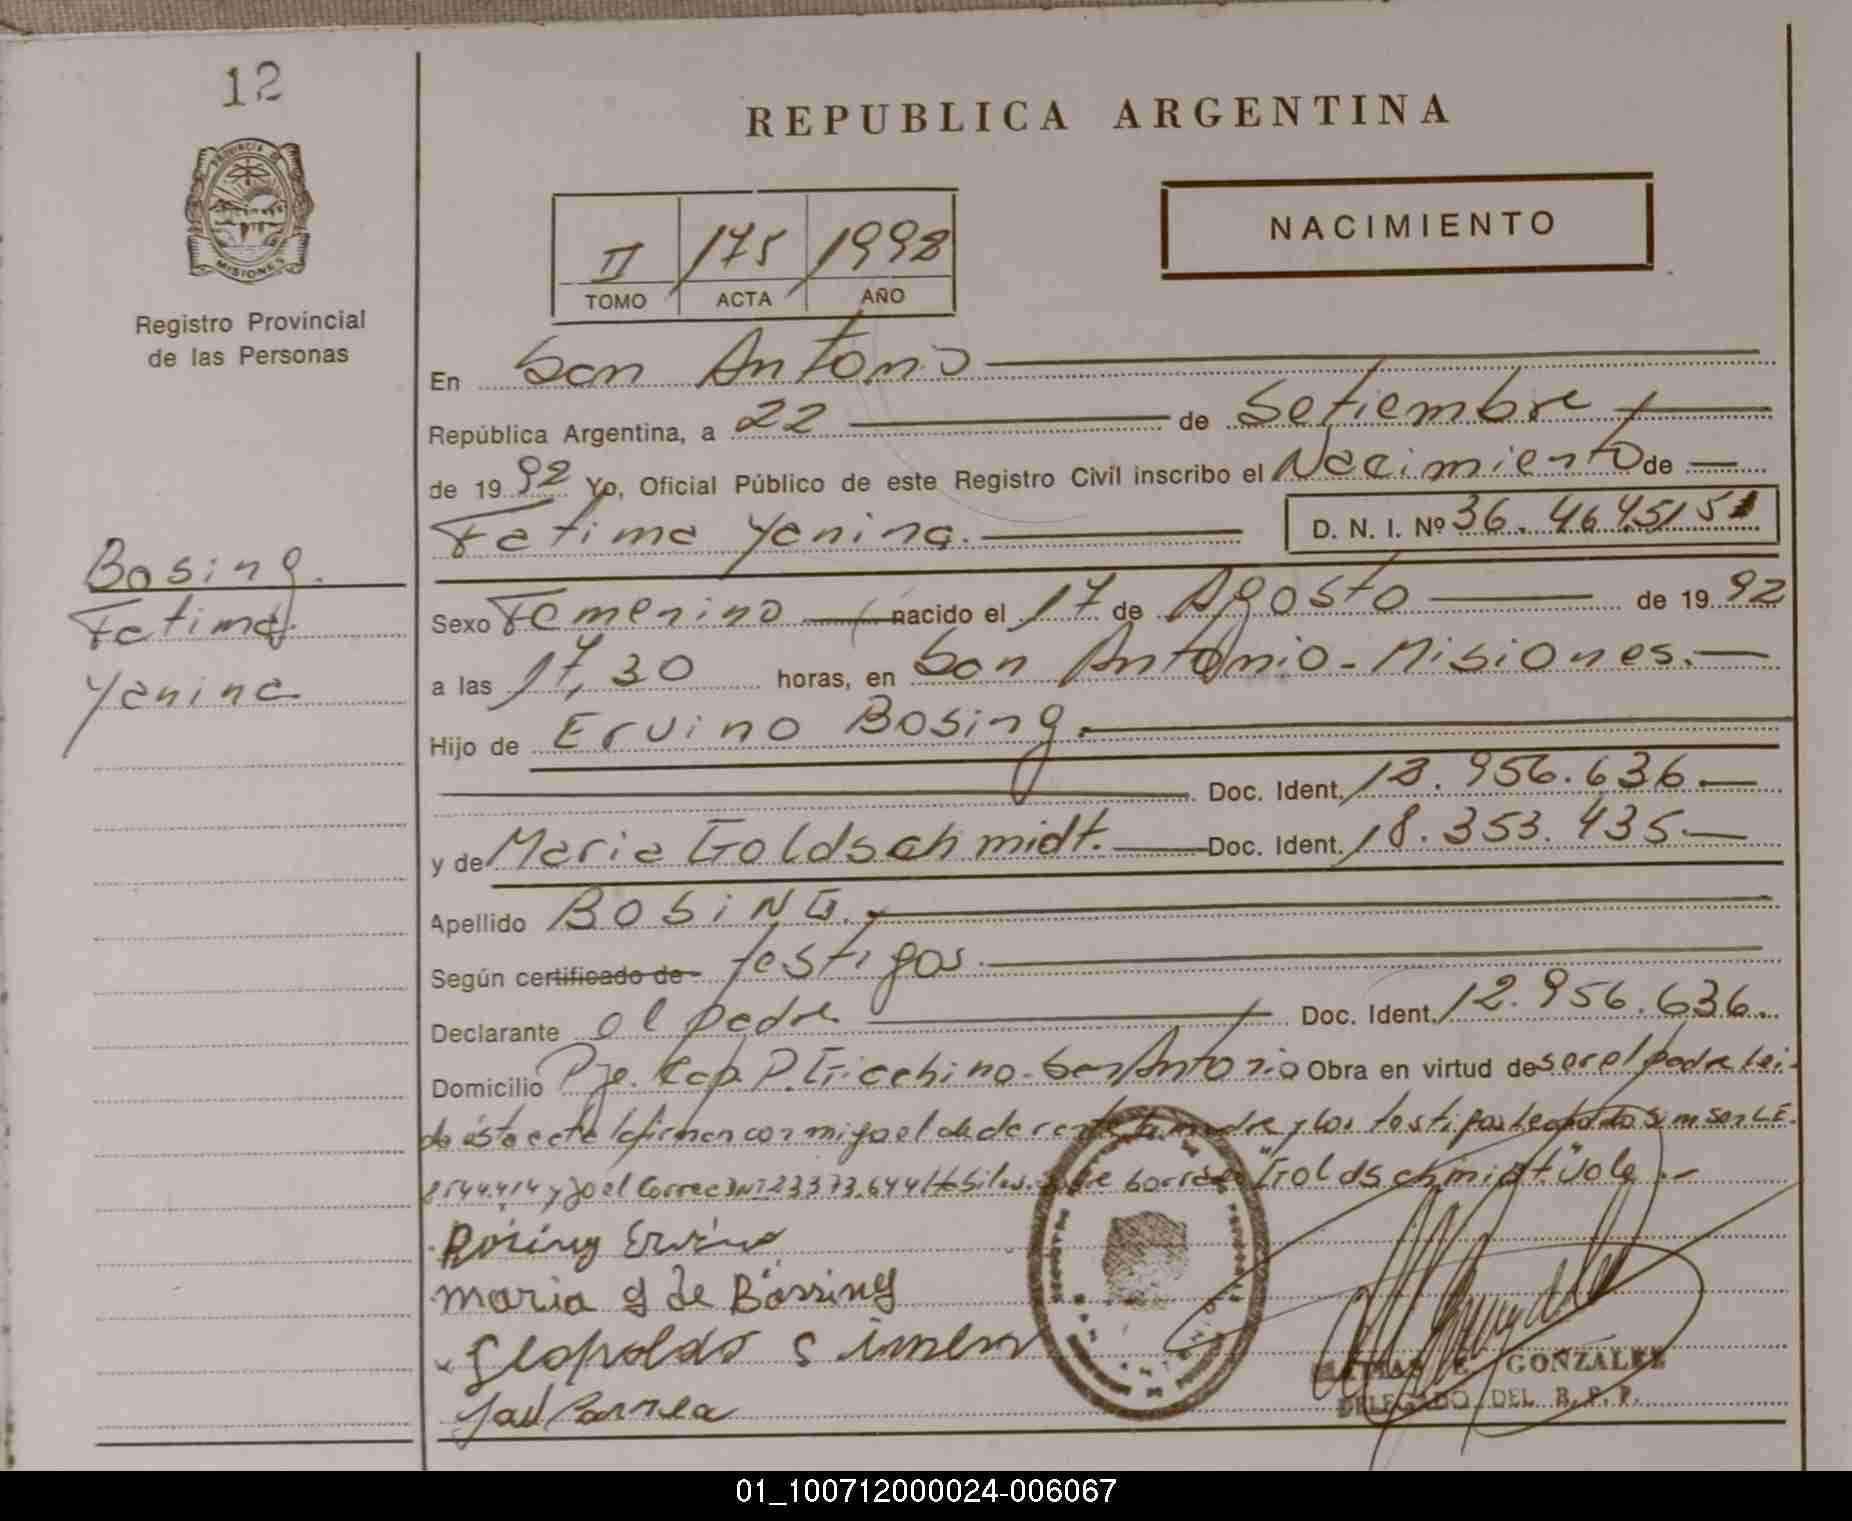 12
PROVINCIA DE
MISIONES
Registro Provincial
de las Personas
Bosing.
Fatima
Yanina
REPUBLICA ARGENTINA
NACIMIENTO
II 175 1992
TOMO ACTA AÑO
En San Antonio
República Argentina, a 22 de Setiembre
de 1992 Yo, Oficial Público de este Registro Civil inscribo el Nacimiento de
Fatima Yanina. D. N. I. Nº 36.464.515
Sexo Femenino nacido el 17 de Agosto de 1992
a las 17,30 horas, en San Antonio - Misiones.
Hijo de Ervino Bosing.
Doc. Ident. 12.956.636.
y de Maria Goldschmidt. Doc. Ident. 18.353.435
Apellido BOSiNG.
Según certificado de testigos.
Declarante el padre Doc. Ident. 12.956.636.
Domicilio Pje. Cap. San Antonio Obra en virtud de ser el padre lei-
da ésta acta la firman conmigo el declarante la madre y los testigos Leopoldo Simsen L.E.
y Joel Correa DNI 23373.644 Habiles. borrado "Goldschmidt" Vale.
Bosing Ervino
maria g de Bossing
Leopoldo
Joel Correa
GONZALEZ
DELEGADO DEL R. P. P.
01_100712000024-006067